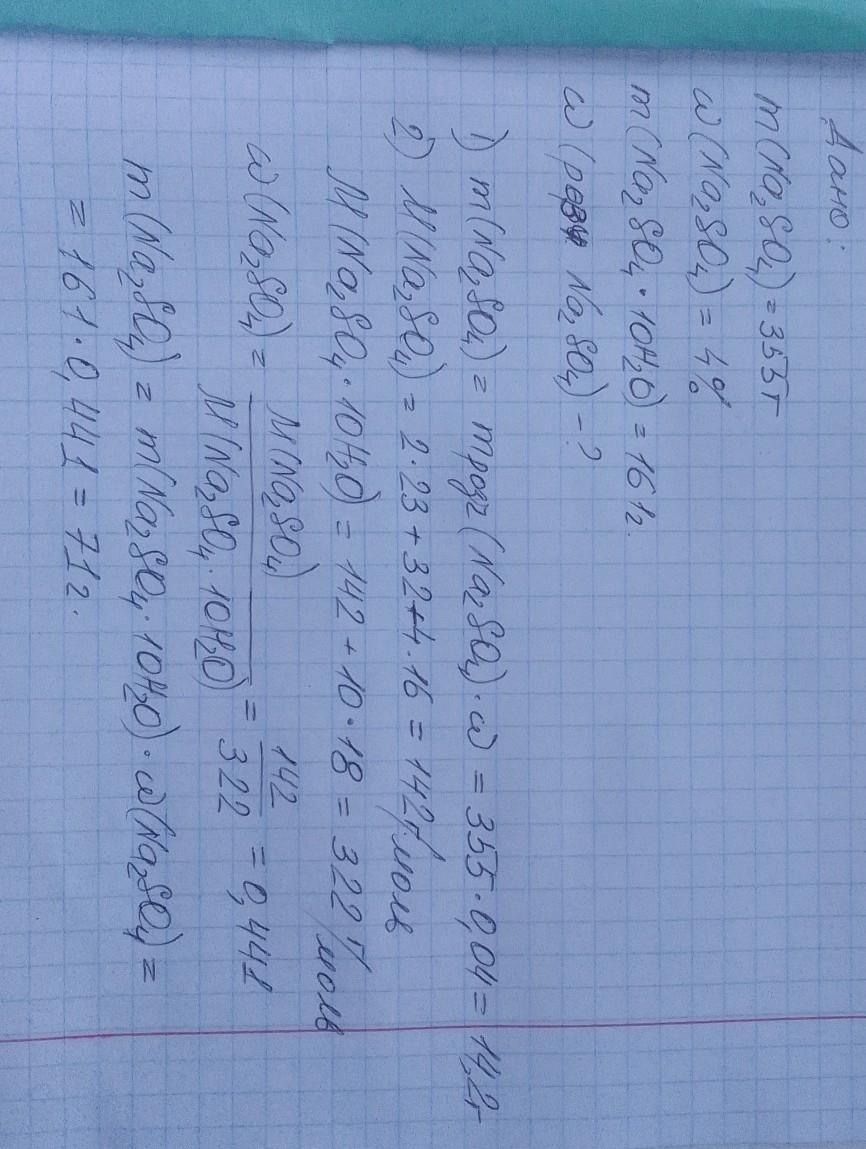 Дано:
m(Na₂SO₄) = 355г
ω(Na₂SO₄) = 4%
m(Na₂SO₄ · 10H₂O) = 161г.
ω( Na₂SO₄) - ?
1) m(Na₂SO₄) = mрозг (Na₂SO₄) · ω = 355 · 0,04 = 14,2г
2) M(Na₂SO₄) = 2·23 + 32 + 4·16 = 142г/моль
M(Na₂SO₄ · 10H₂O) = 142 + 10 · 18 = 322 г/моль
ω(Na₂SO₄) = M(Na₂SO₄) / M(Na₂SO₄ · 10H₂O) = 142 / 322 = 0,441
m(Na₂SO₄) = m(Na₂SO₄ · 10H₂O) · ω(Na₂SO₄) =
= 161 · 0,441 = 71г.